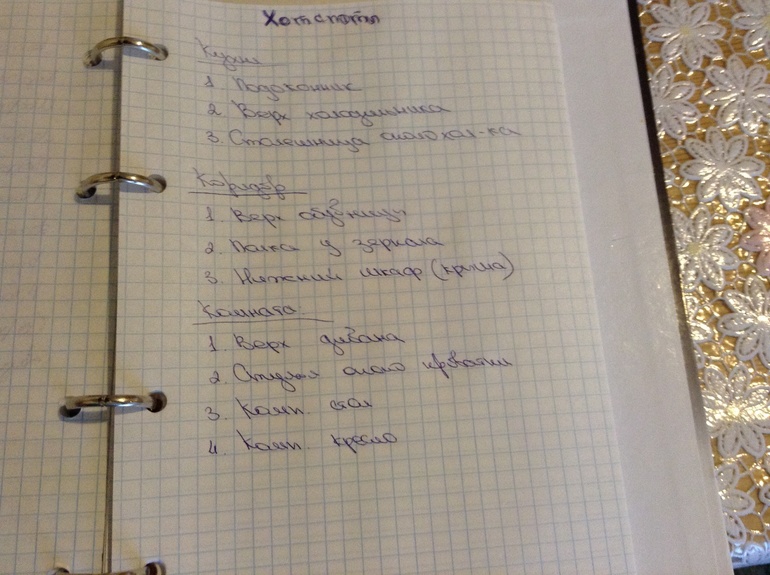 Хотспоты
Кухня
1. Подоконник
2. Верх холодильника
3. Столешница около хол-ка
Коридор
1. Верх обувницы
2. Полка у зеркала
3. Нижний шкаф (крыша)
Комната
1. Верх дивана
2. Стулья около кроватки
3. Комп. стол
4. Комп. кресло